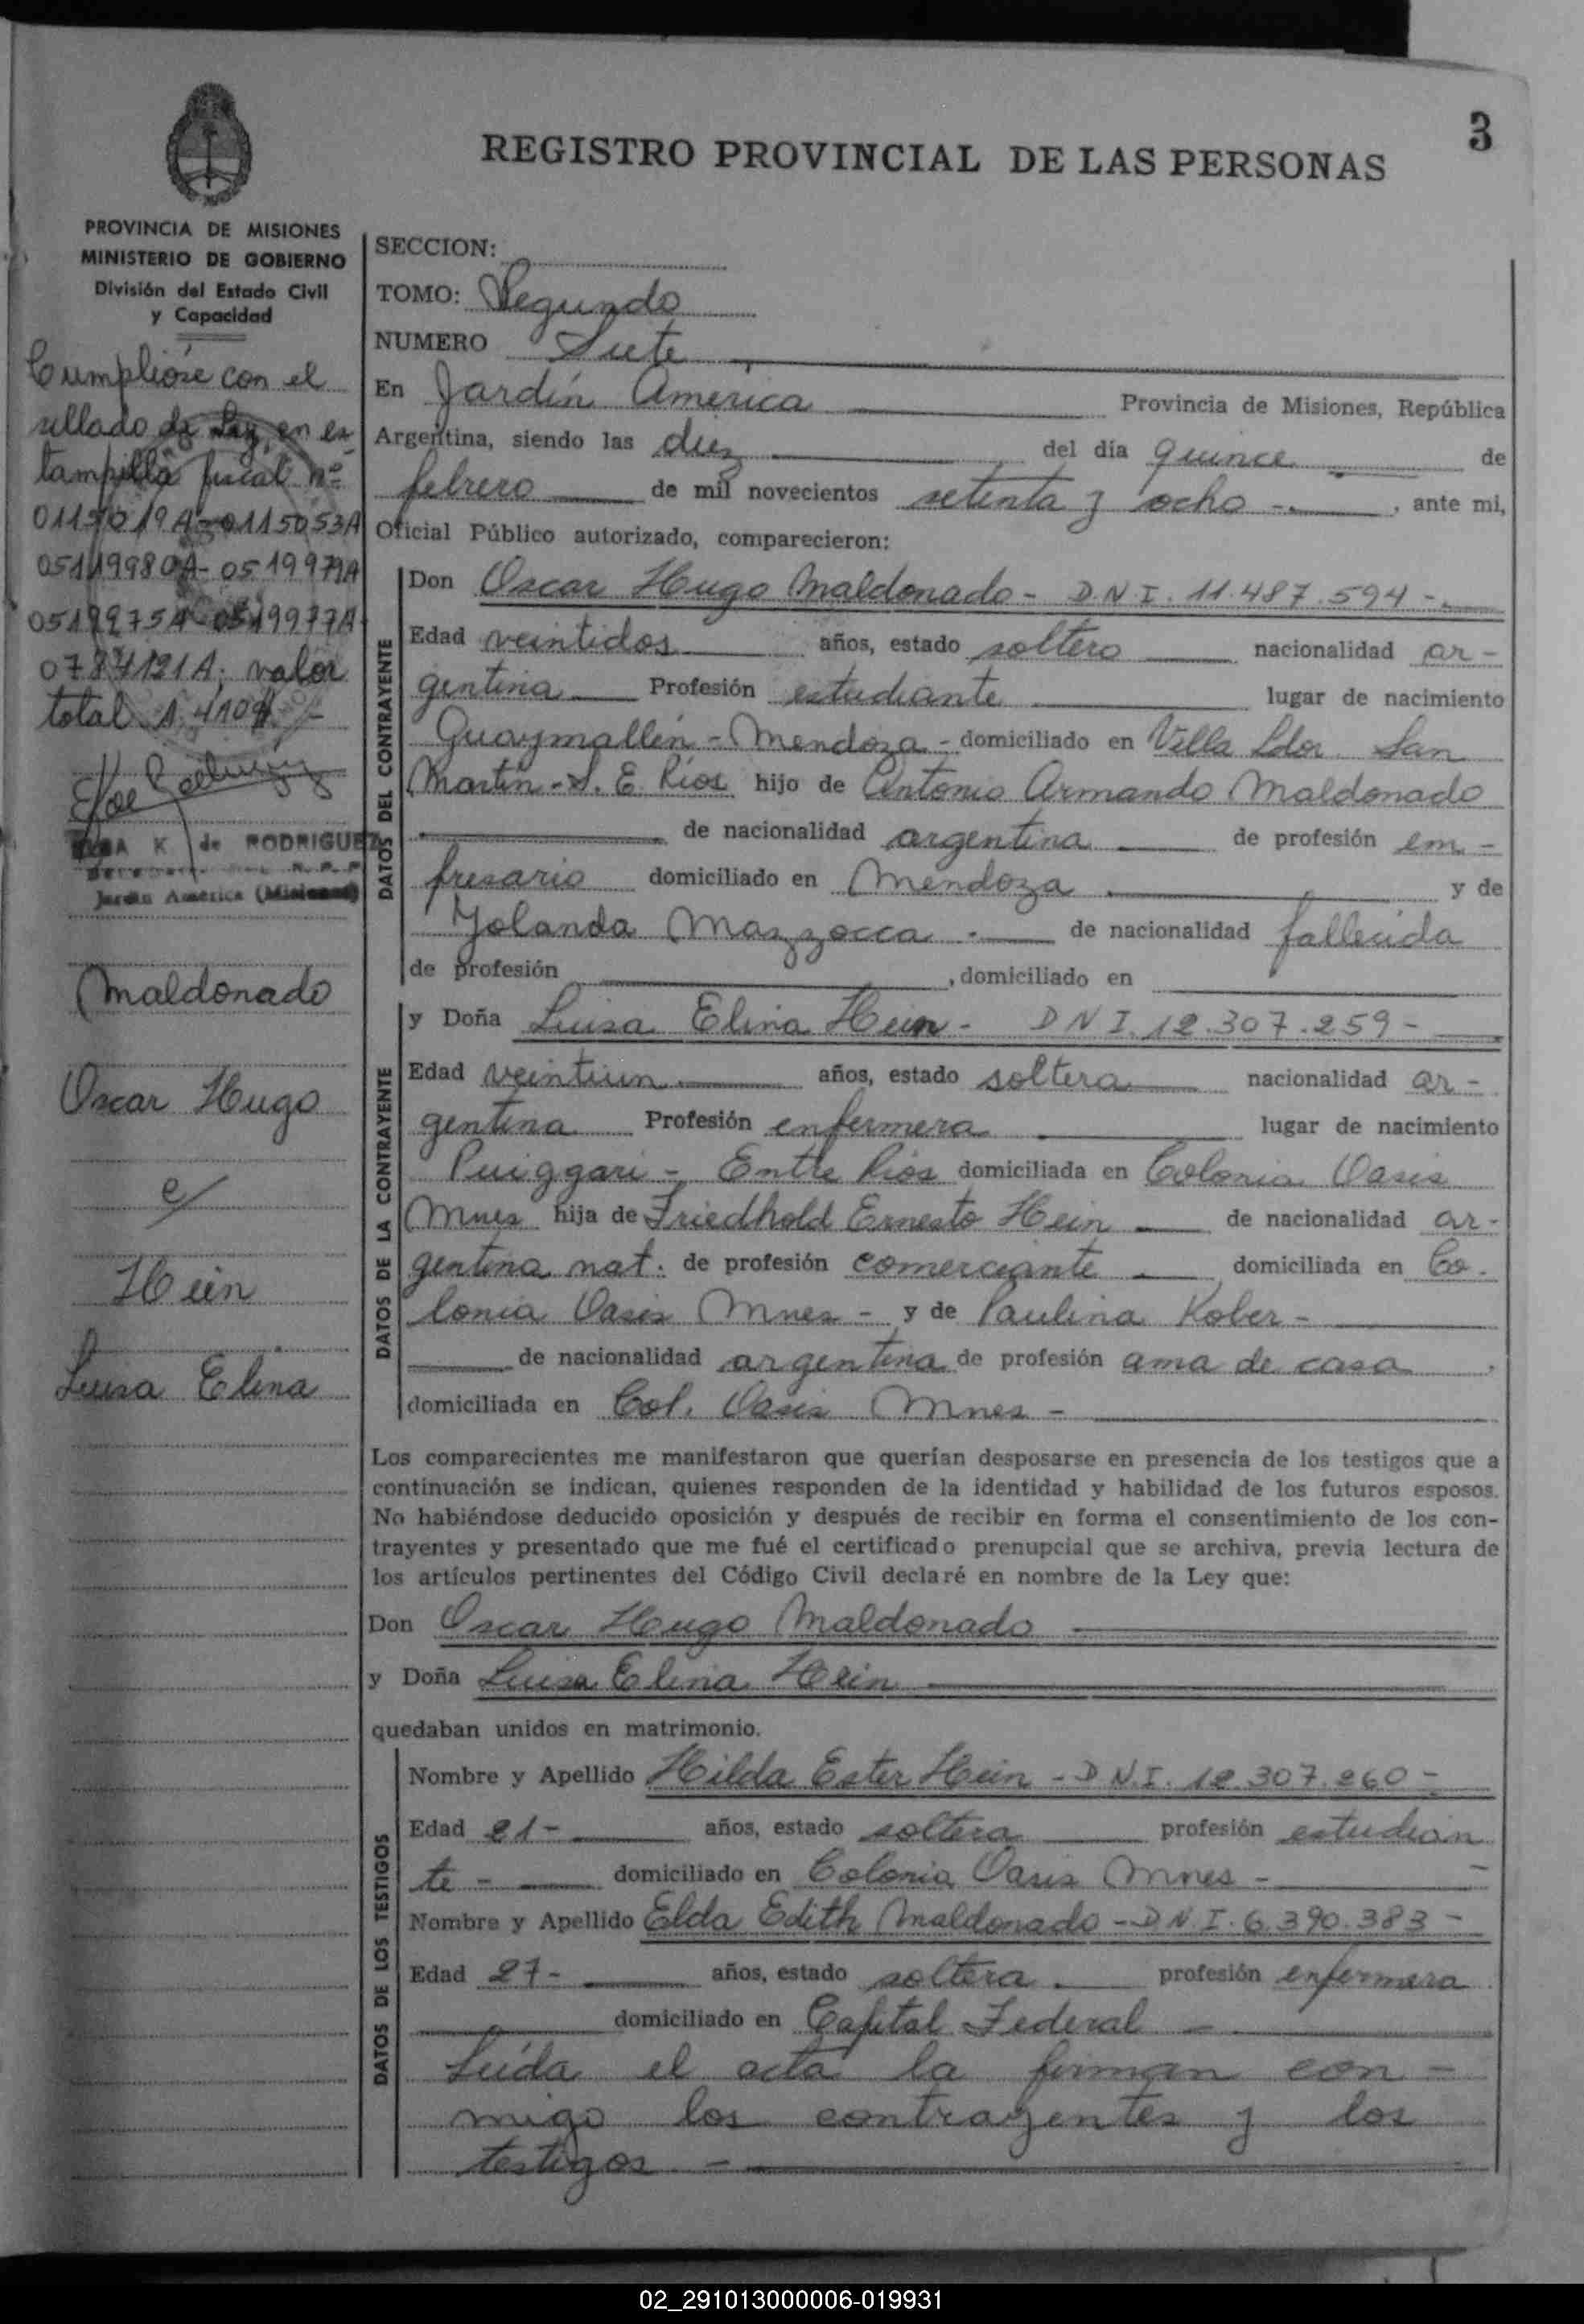 3
REGISTRO PROVINCIAL DE LAS PERSONAS
PROVINCIA DE MISIONES
MINISTERIO DE GOBIERNO
División del Estado Civil
y Capacidad
Cumplióse con el
sellado de Ley, en es
tampilla fiscal nº
0115019A-0115053A
0519980A-0519979A
0519975A-0519977A
0784121A; valor
total
K de RODRIGUEZ
Jardín América (Misiones)
Maldonado
Oscar Hugo
e/
Hein
Luisa Elina
SECCION:
TOMO: Segundo
NUMERO Siete
En Jardín América Provincia de Misiones, República
Argentina, siendo las diez del día quince de
febrero de mil novecientos setenta y ocho -. , ante mi,
Oficial Público autorizado, comparecieron:
DATOS DEL CONTRAYENTE
Don Oscar Hugo Maldonado - D.N.I. 11.487.594 -.
Edad veintidos años, estado soltero nacionalidad ar-
gentina Profesión estudiante lugar de nacimiento
Guaymallén - Mendoza - domiciliado en Villa Ldor. San
Martín - E. Ríos hijo de Antonio Armando Maldonado
de nacionalidad argentina de profesión em-
presario domiciliado en Mendoza y de
Yolanda Mazzocca . de nacionalidad fallecida
de profesión , domiciliado en
DATOS DE LA CONTRAYENTE
y Doña Luisa Elina Hein - DNI. 12.307.259 -
Edad veintiun años, estado soltera nacionalidad ar-
gentina Profesión enfermera lugar de nacimiento
Puiggari - Entre Ríos domiciliada en Colonia Oasis
Mnes hija de Friedhold Ernesto Hein de nacionalidad ar-
gentina nat. de profesión comerciante domiciliada en Co.
lonia Oasis Mnes - y de Paulina Kober -
de nacionalidad argentina de profesión ama de casa ,
domiciliada en Col. Oasis Mnes -
Los comparecientes me manifestaron que querían desposarse en presencia de los testigos que a
continuación se indican, quienes responden de la identidad y habilidad de los futuros esposos.
No habiéndose deducido oposición y después de recibir en forma el consentimiento de los con-
trayentes y presentado que me fué el certificado prenupcial que se archiva, previa lectura de
los artículos pertinentes del Código Civil declaré en nombre de la Ley que:
Don Oscar Hugo Maldonado
y Doña Luisa Elina Hein
quedaban unidos en matrimonio.
DATOS DE LOS TESTIGOS
Nombre y Apellido Hilda Ester Hein - D.N.I. 12.307.260 -
Edad 21 - años, estado soltera profesión estudian
te - domiciliado en Colonia Oasis Mnes -
Nombre y Apellido Elda Edith Maldonado - D.N.I. 6.390.383 -
Edad 27 - años, estado soltera profesión enfermera
domiciliado en Capital Federal -
Leída el acta la firman con -
migo los contrayentes y los
testigos -
02_291013000006-019931